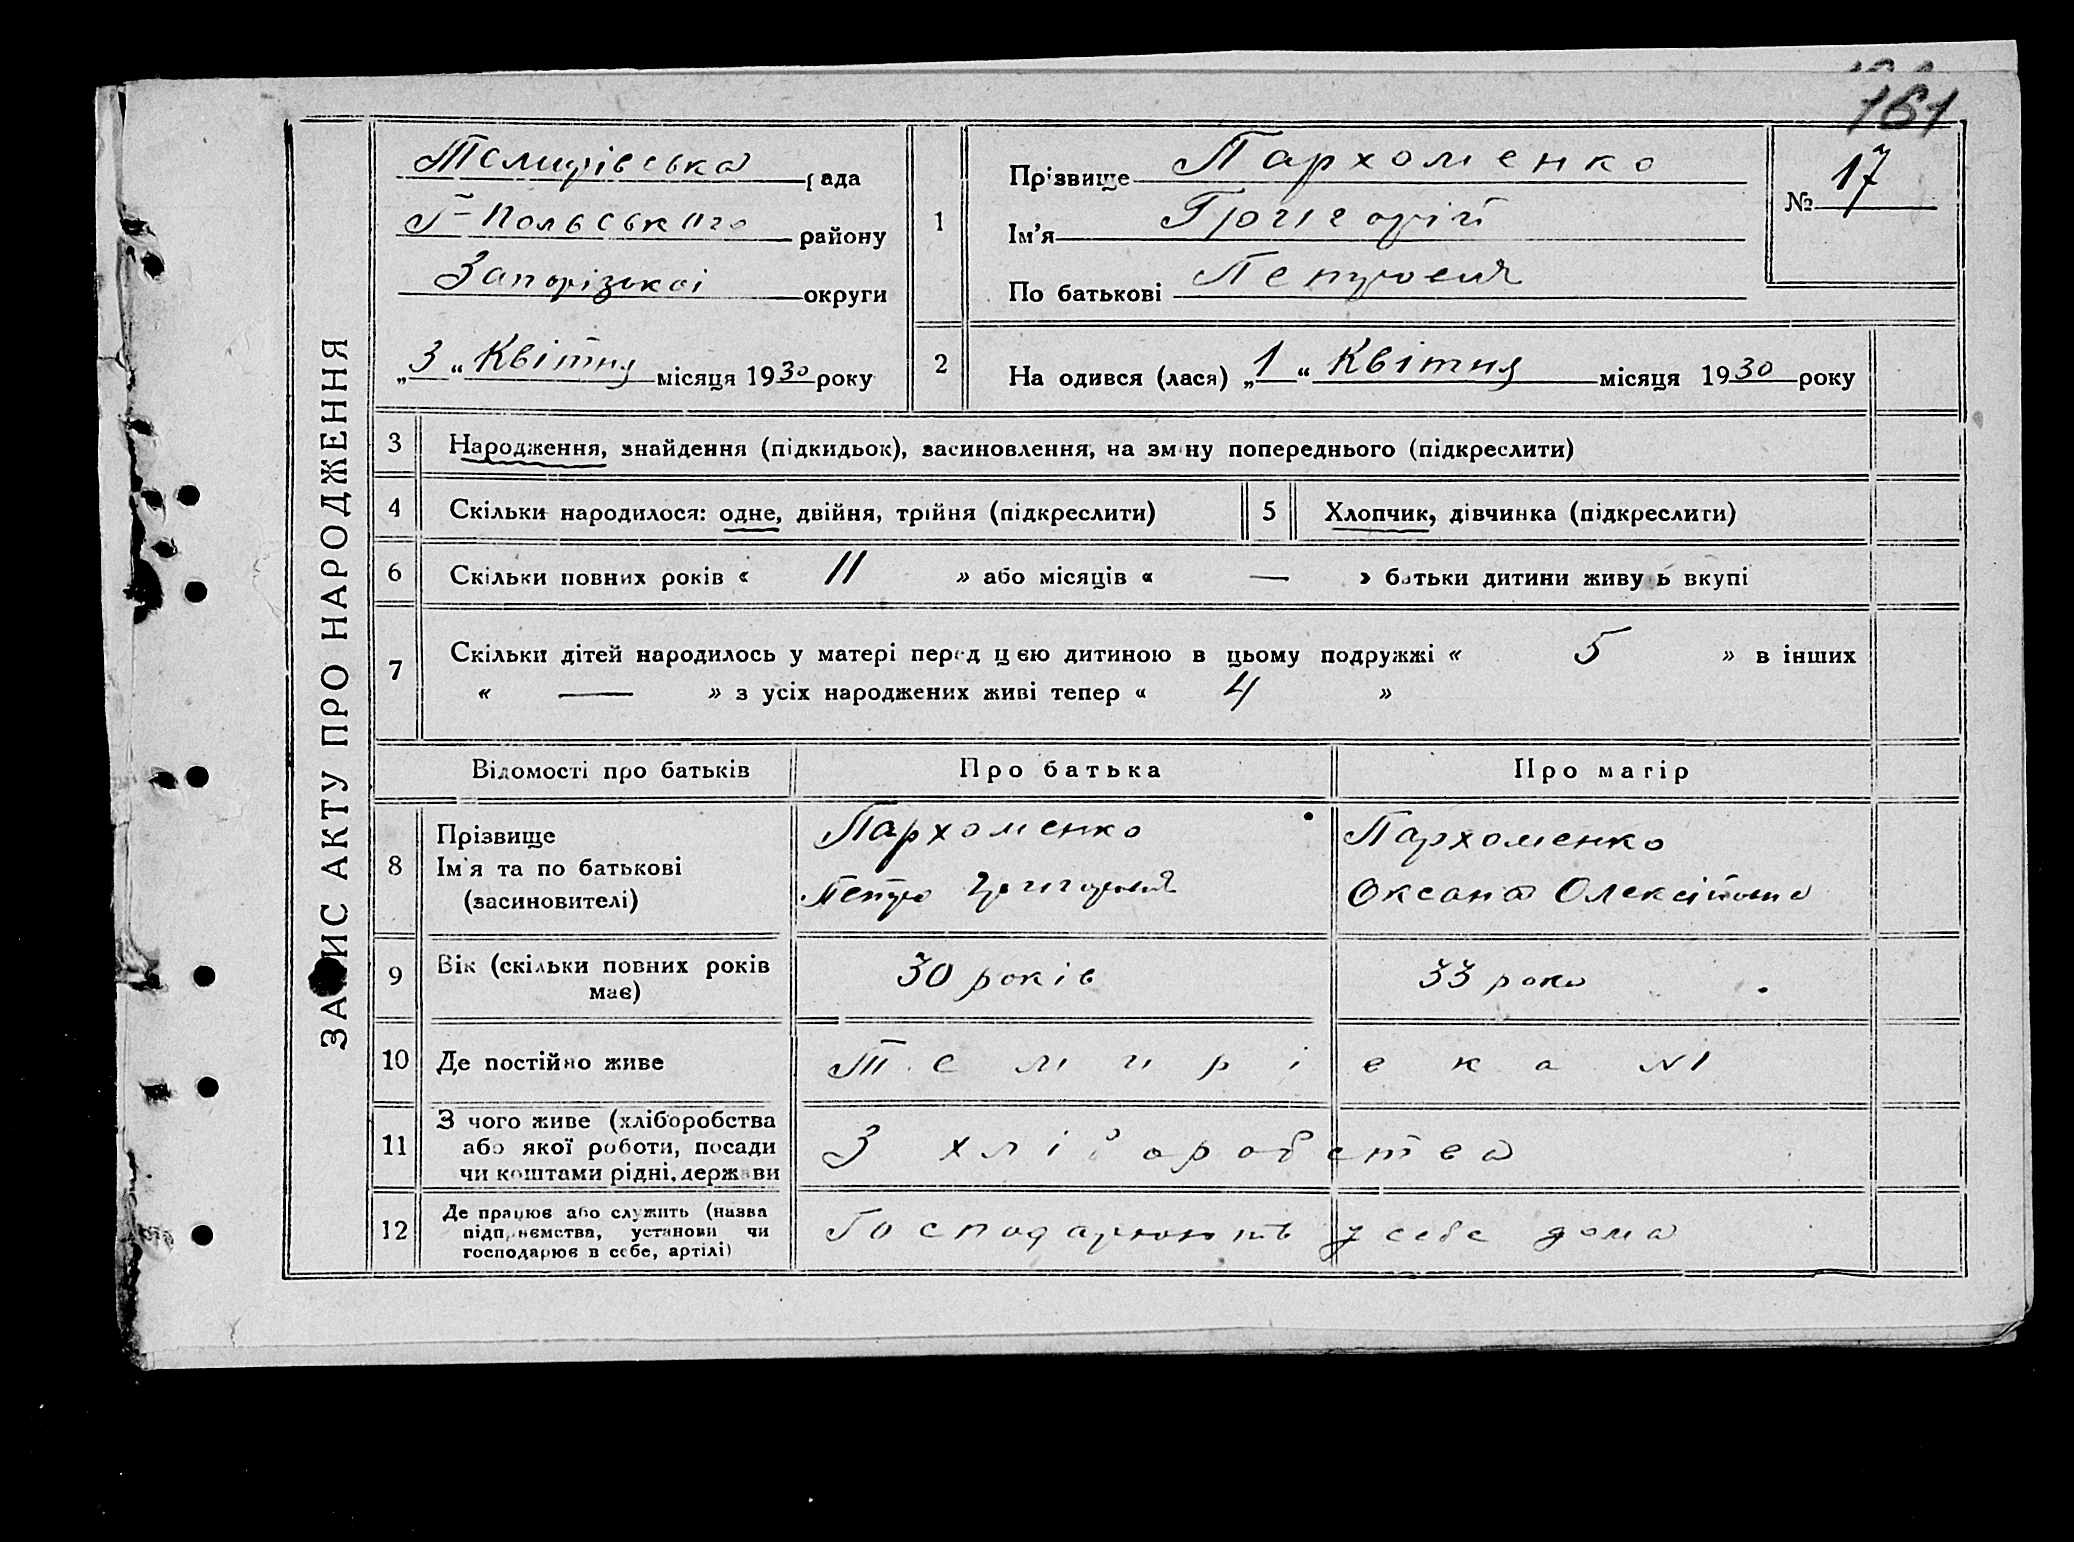 161
ЗАПИС АКТУ ПРО НАРОДЖЕННЯ
Темирівська рада
Г-Польського району
Запорізької округи
„3“ Квітня місяця 1930 року
1
Прізвище Пархоменко
Ім'я Григорій
По батькові Петрович
№ 17
2
На одився (лася) „1“ Квітня місяця 1930 року
3 Народження, знайдення (підкидьок), засиновлення, на зміну попереднього (підкреслити)
4 Скільки народилося: одне, двійня, трійня (підкреслити) 5 Хлопчик, дівчинка (підкреслити)
6 Скільки повних років « 11 » або місяців « — » батьки дитини живуть вкупі
7 Скільки дітей народилось у матері перед цією дитиною в цьому подружжі « 5 » в інших
« — » з усіх народжених живі тепер « 4 »
Відомості про батьків Про батька Про матір
8 Прізвище
Ім'я та по батькові
(засиновителі)
Пархоменко
Петро Григорович
Пархоменко
Оксана Олексіївна
9 Вік (скільки повних років
має)
30 років 33 роки
10 Де постійно живе Темирівка №1
11 З чого живе (хліборобства
або якої роботи, посади
чи коштами рідні, держави
З хліборобства
12 Де працює або служить (назва
підприємства, установи чи
господарює в себе, артілі)
Господарюють у себе дома